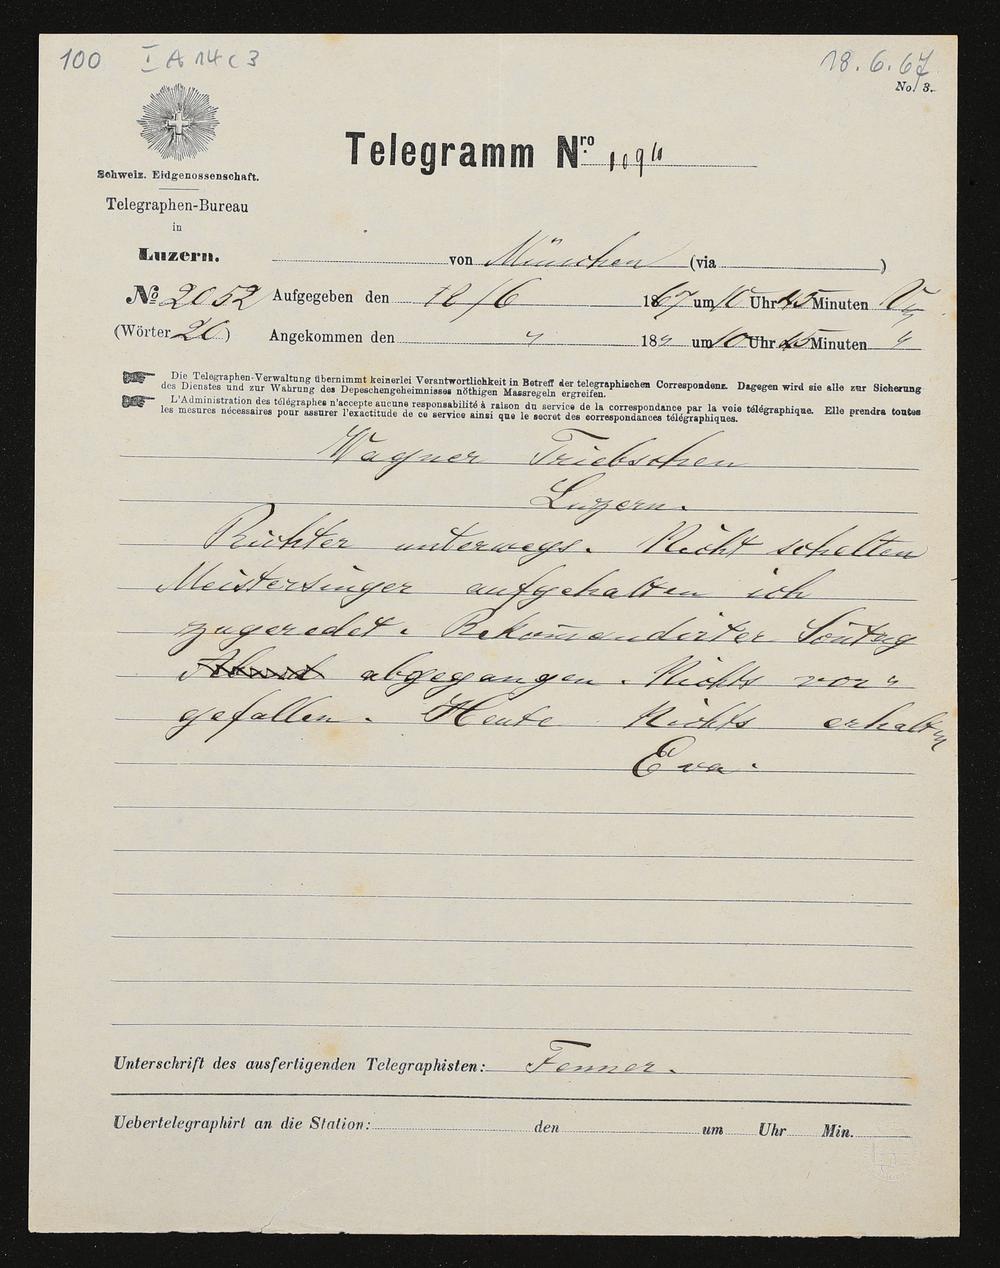 100 I A 14 c 3
18.6.67
No. 3.
Telegramm Nro.
Schweiz. Eidgenossenschaft.
Telegraphen-Bureau
in
Luzern.
von München (via )
No 2052 Aufgegeben den 18/6 1867 um 10 Uhr 45 Minuten
(Wörter 20) Angekommen den " 18" um 10 Uhr 45 Minuten "
Die Telegraphen-Verwaltung übernimmt keinerlei Verantwortlichkeit in Betreff der telegraphischen Correspondenz. Dagegen wird sie alle zur Sicherung
des Dienstes und zur Wahrung des Depeschengeheimnisses nöthigen Massregeln ergreifen.
L'Administration des télégraphes n'accepte aucune responsabilité à raison du service de la correspondance par la voie télégraphique. Elle prendra toutes
les mesures nécessaires pour assurer l'exactitude de ce service ainsi que le secret des correspondances télégraphiques.
Wagner Triebschen
Luzern.
Richter unterwegs. Nicht schelten
Meistersinger aufgehalten ich
zugeredet. Rekomandirter Sontag
abgegangen. Nichts vor-
gefallen. Heute Nichts erhalten
Eva.
Unterschrift des ausfertigenden Telegraphisten: Fenner.
Uebertelegraphirt an die Station: den um Uhr Min.